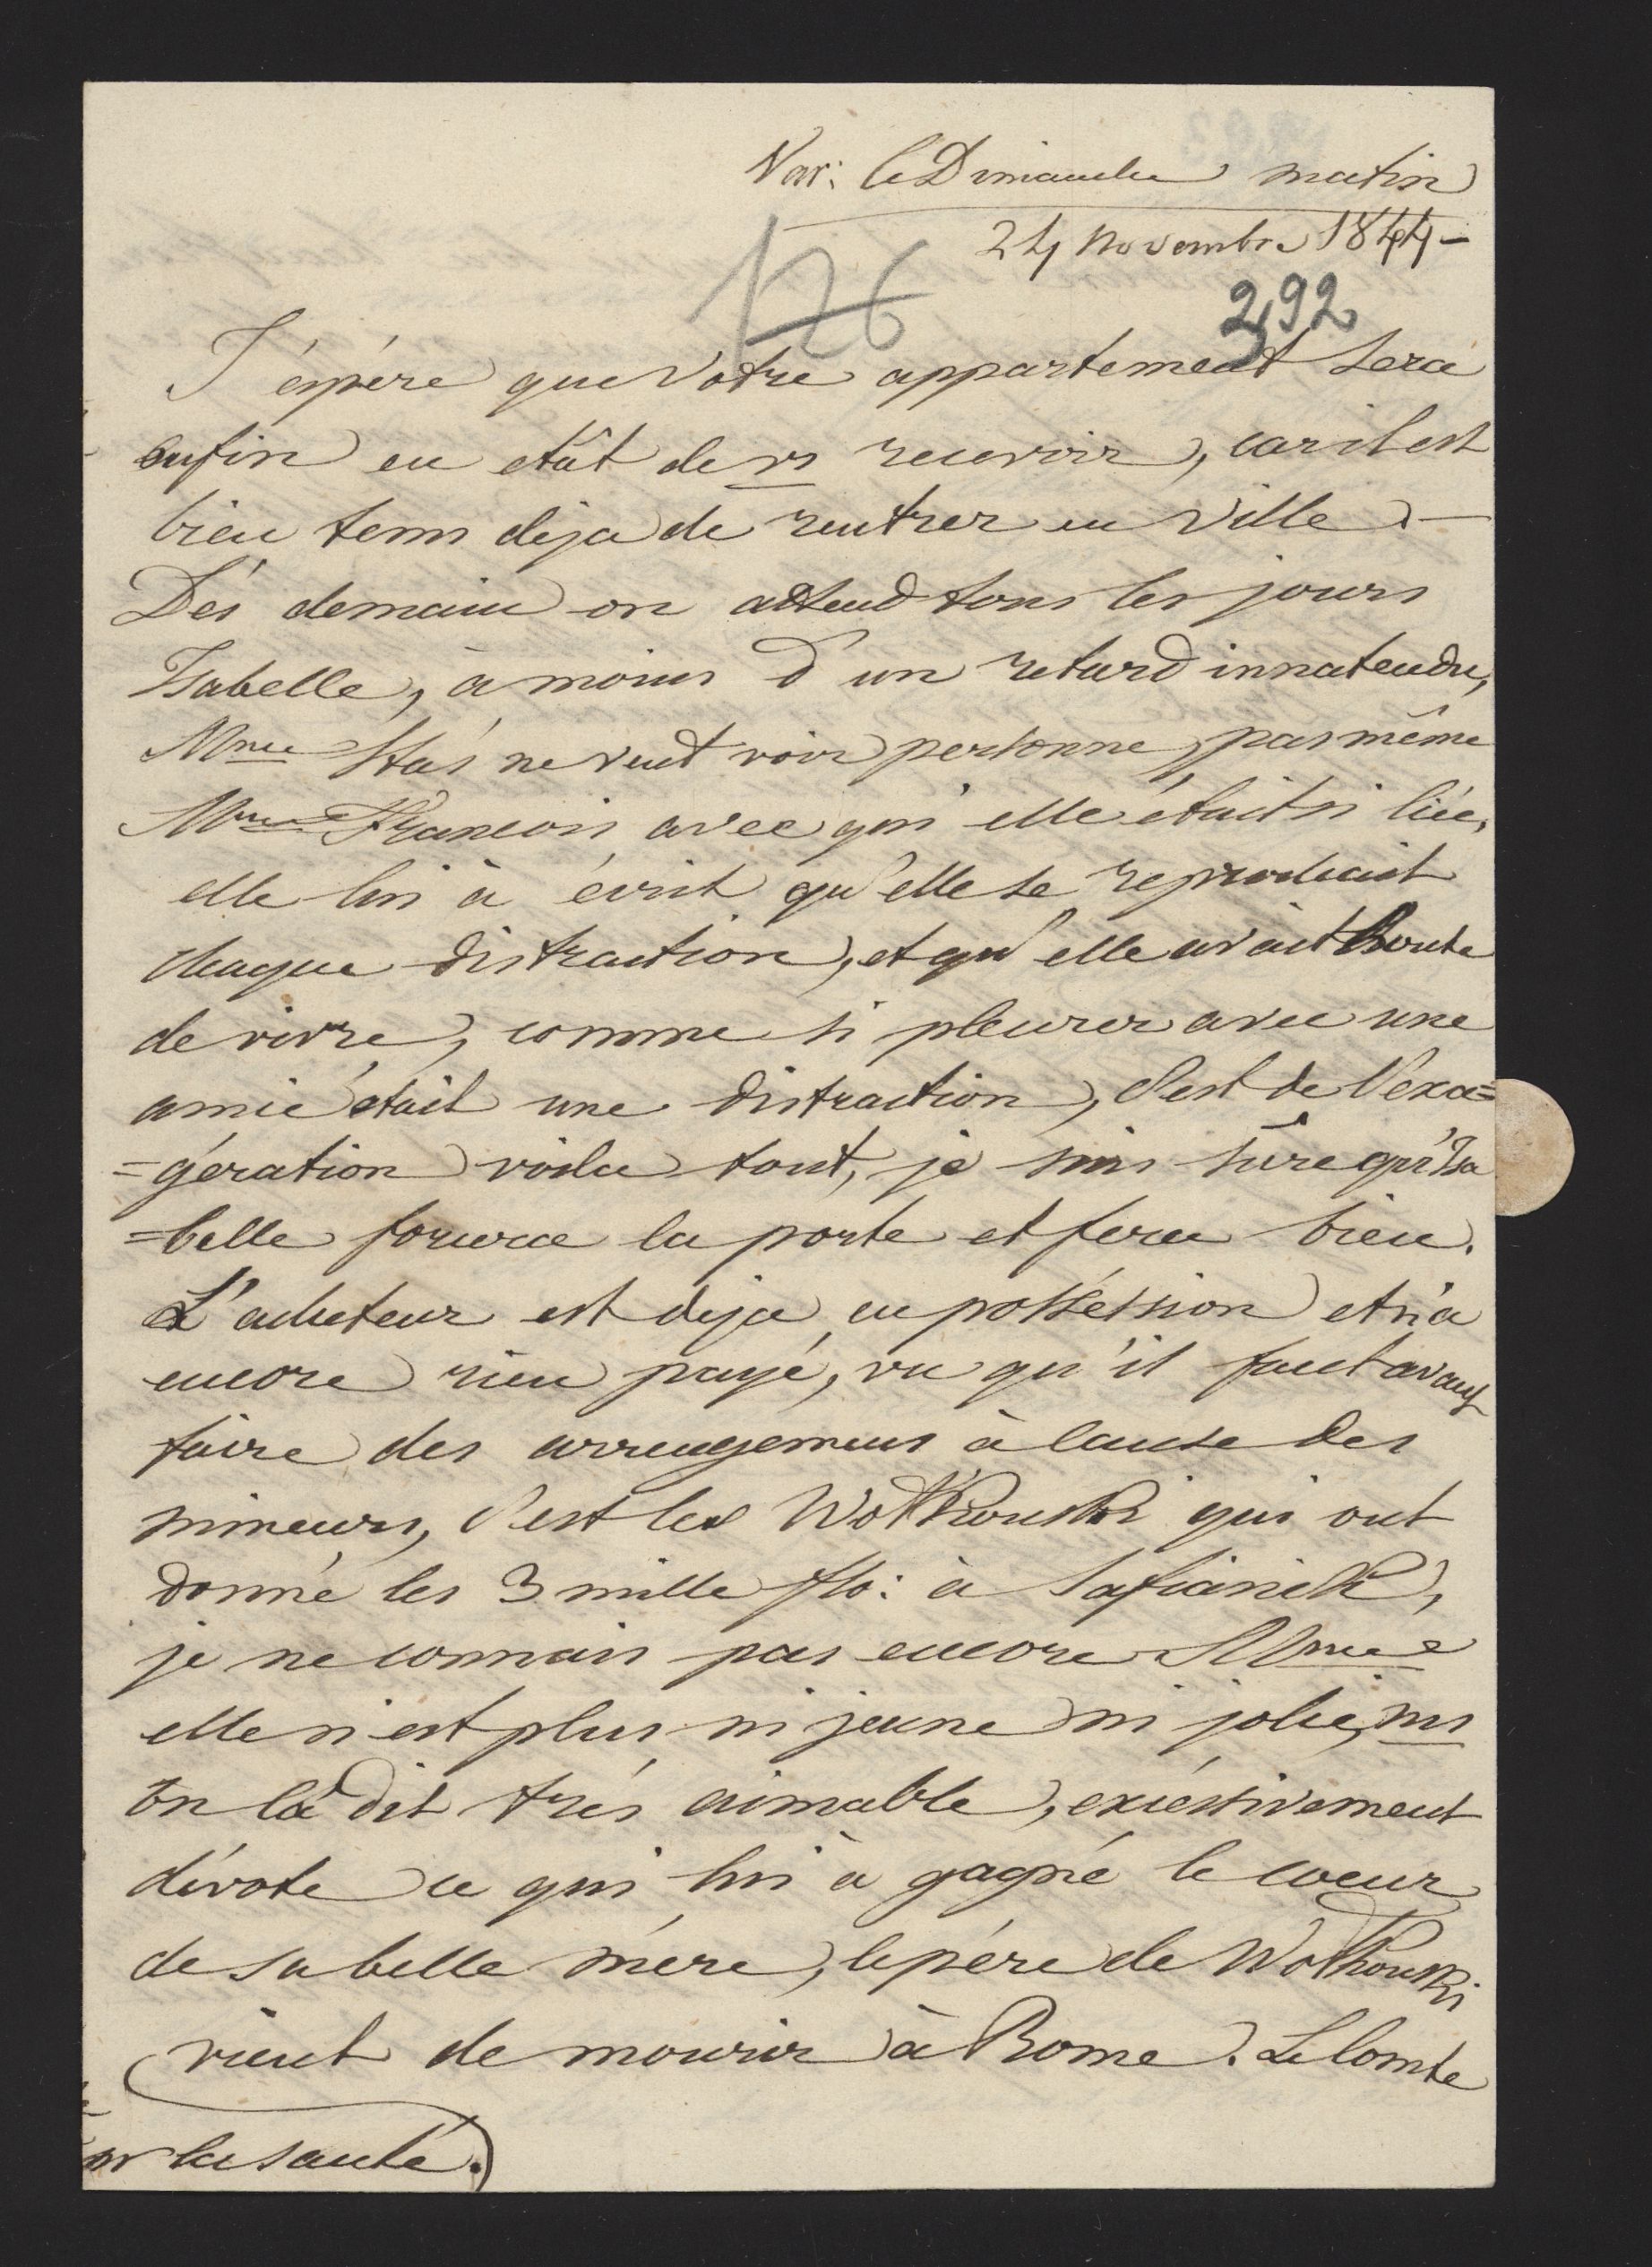 Var: le Dimanche matin
24 Novembre 1844 –
126
292
J'éspére que Votre appartement sera
enfin en etât de vs recevoir, car il est
bien tems deja de rentrer en Ville. —
Dés demain on attend tous les jours
Isabelle, à moins d'un retard innatendu,
Mme Stas ne veut voir personne, pas même
Mme François avec qui elle était si liée,
elle lui à écrit qu'elle se reprochait
chaque distraction, et qu'elle avait honte
de vivre, comme si pleurer avec une
amie était une distraction, c'est de l'exa=
=gération voila tout, je suis sûre qu'Isa
=belle forcera la porte et fera bien.
L'acheteur est deja en posséssion et n'a
encore rien payé, vu qu'il faut avant
faire des arrengemens à cause des
mineurs, c'est les Wołkouski qui ont
donné les 3 mille flo: à
je ne connais pas encore Mme
elle n'est plus ni jeune ni jolie, ms
on la dit trés aimable, excéssivement
dévote ce qui lui à gagné le coeur
de sa belle mére, le pére de Wołkouski
vient de mourir à Rome. Le Comte
la santé.)